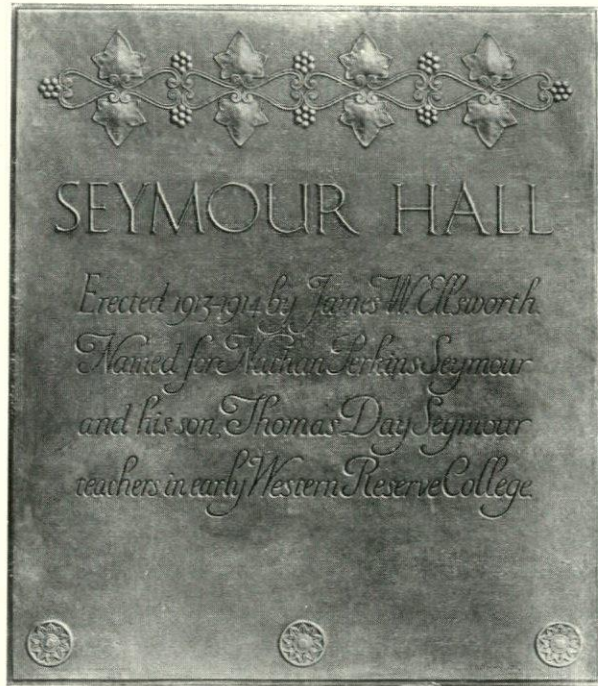 SEYMOUR HALL
Erected 1913-1914 by James W. Ellsworth.
Named for Nathan Perkins Seymour
and his son, Thomas Day Seymour
teachers in early Western Reserve College.